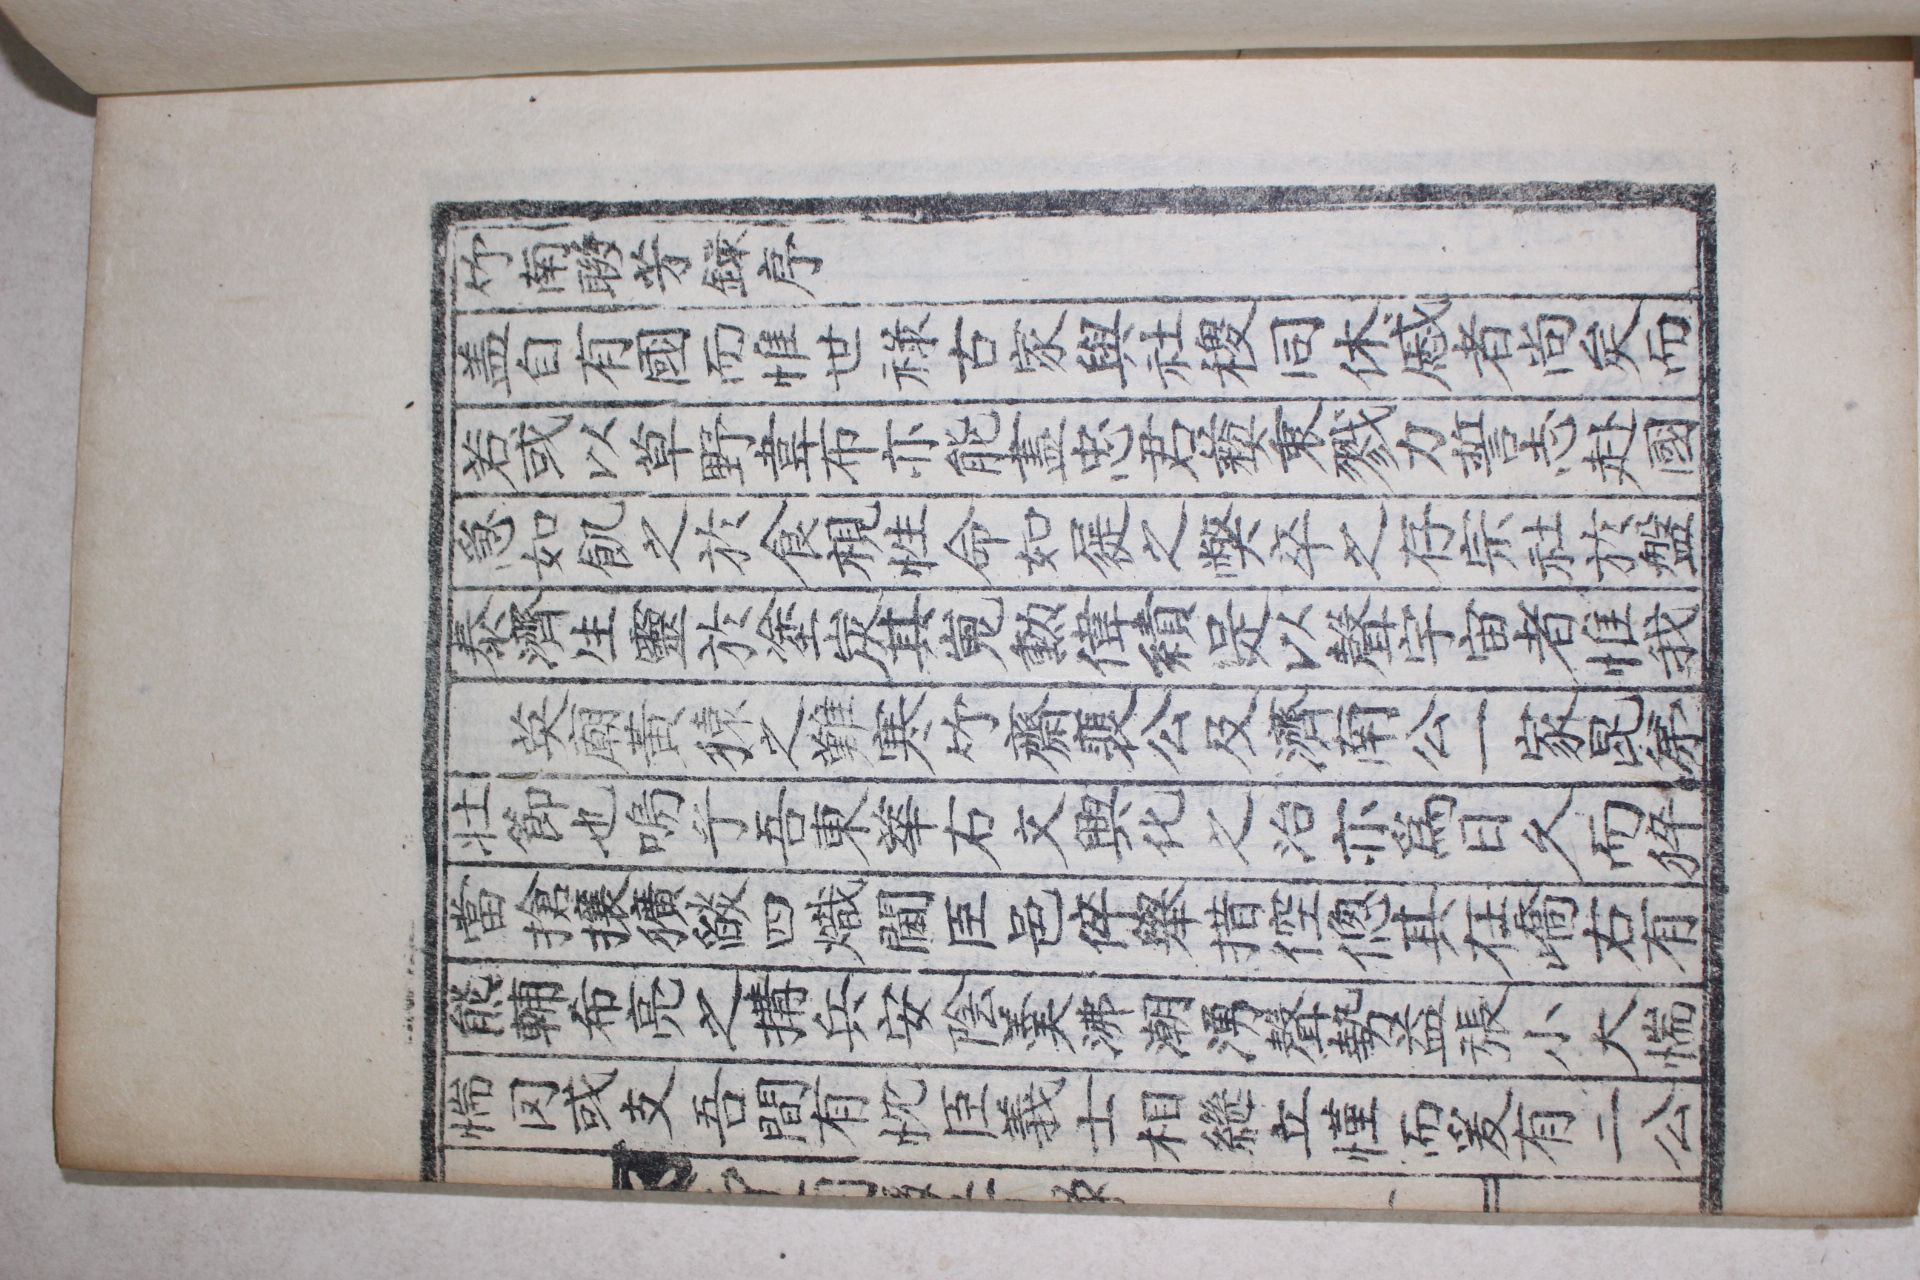 竹南聯芳錄序
盖自有國而惟世祿古家與社稷同休慼者尚矣而
若或以草野韋布亦能盡忠君彛秉戮力誓志赴國
急如飢之於食視性命如屣之獘卒之存宗社於盤
泰濟生靈於塗炭其嵬勳偉績是以聲宇宙者惟我
英廟黃猿之難寒竹齋裵公及濟南公一家昆弟
壯節也嗚乎吾東華右文興化之治亦爲日久而猝
當搶攘獷燄四熾閫臣邑倅擧措倥傯其在嶠右有
熊輔希亮之搆兵安陰羹沸潮湧聲勢益張小大惴
惴罔或支吾間有忱臣義士相繼立慬而爰有二公